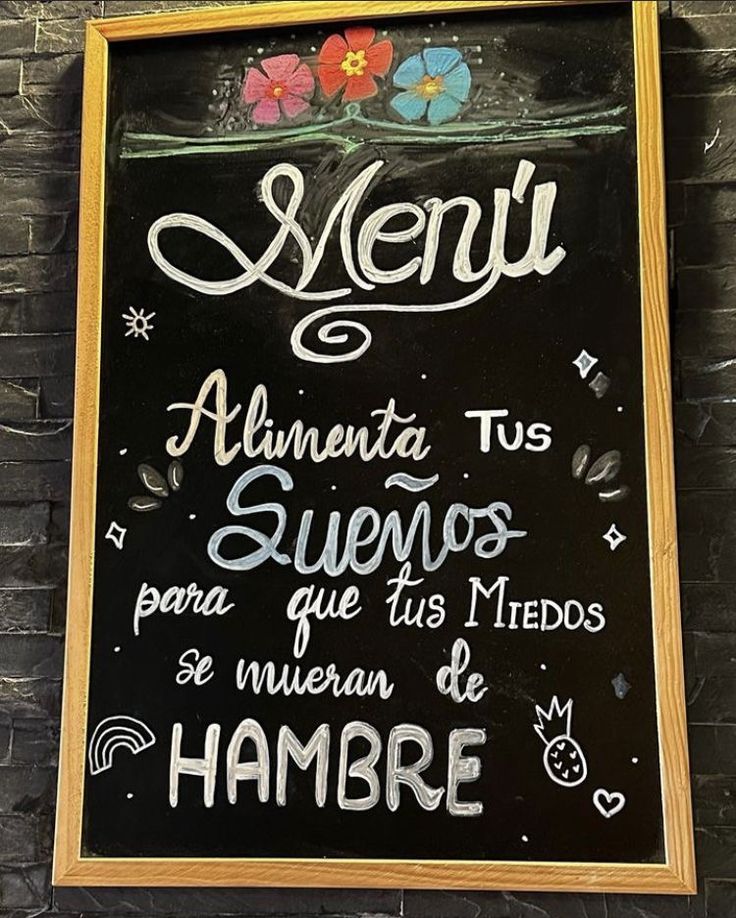 Menú
Alimenta Tus
Sueños
para que tus MIEDOS
se mueran de
HAMBRE